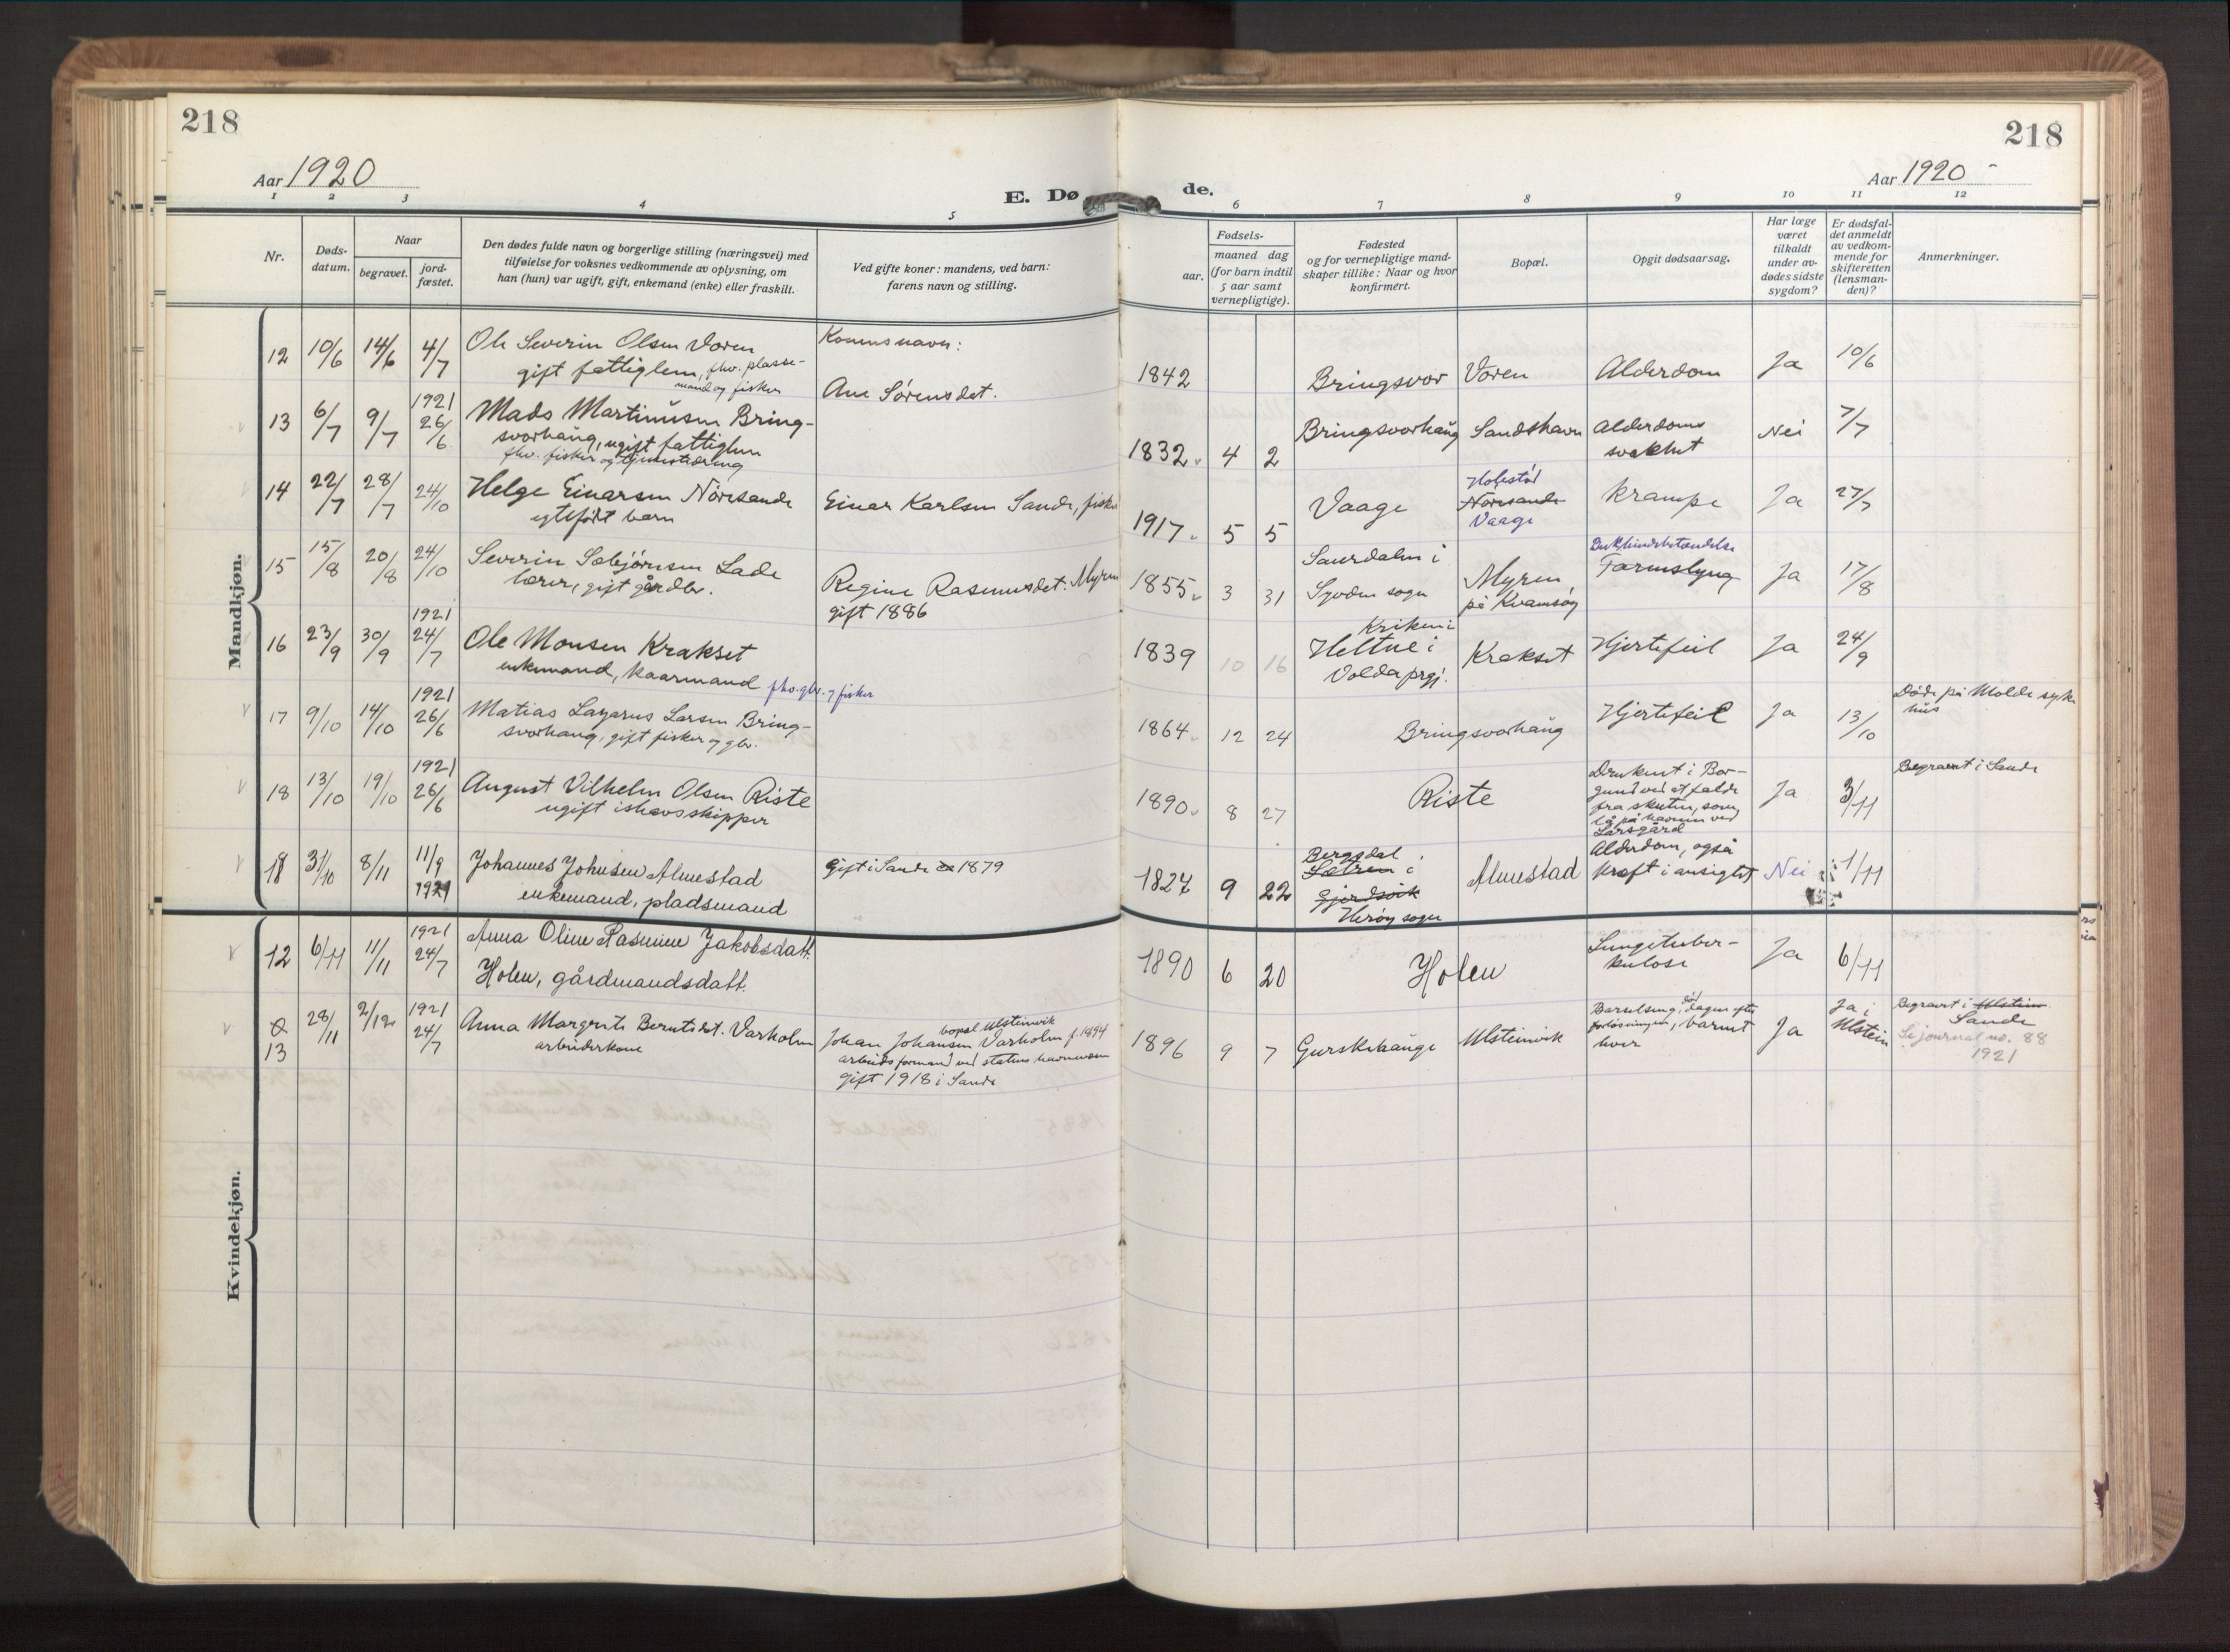 218
218
Aar 1920
Aar 1920
E. Dø
de.
1 2 3 4 5 6 7 8 9 10 11 12
Nr.
Døds-
datum.
Naar
begravet.
jord-
fæstet.
Den dødes fulde navn og borgerlige stilling (næringsvei) med
tilføielse for voksnes vedkommende av oplysning, om
han (hun) var ugift, gift, enkemand (enke) eller fraskilt.
Ved gifte koner: mandens, ved barn:
farens navn og stilling.
Fødsels-
aar.
maaned dag
(for barn indtil
5 aar samt
vernepligtige).
Fødested
og for vernepligtige mand-
skaper tillike: Naar og hvor
konfirmert.
Bopæl.
Opgit dødsaarsag.
Har læge
været
tilkaldt
under av-
dødes sidste
sygdom?
Er dødsfal-
det anmeldt
av vedkom-
mende for
skifteretten
(lensman-
den)?
Anmerkninger.
Mandkjøn.
12 10/6 14/6 4/7 Ole Severin Olsen Voren
gift fattiglem, fhv. plasse-
mand og fisker
Konens navn:
Ane Sørensdet.
1842 Bringsvor Voren Alderdom Ja 10/6
13 6/7 9/7 1921 26/6 Mads Martinusen Bring-
svorhaug, ugift fattiglem
fhv. fisker og
1832 4 2 Bringsvorhaug Sandshavn Alderdoms
svakhet Nei 7/7
14 22/7 28/7 24/10 Helge Einarsen Nøresande
egtefødt barn
Einar Karlsen Sande, fisker
1917 5 5 Vaage
Nøresande
Vaage
Krampe Ja 27/7
15 15/8 20/8 24/10 Severin Sæbjørnsen Lade
lærer, gift gårdbr.
Regine Rasmusdet. Myren
gift 1886
1855 3 31 Saurdalen i
Syvden sogn
Myren
på Kvamsøy
Bukhindebetændelse
Tarmslyng
Ja 17/8
16 23/9 30/9 1921 24/7 Ole Monsen Krakset
enkemand, kaarmand fhv. gbr. og fisker
1839 10 16 Kriken i
Heltne i
Volda prgj.
Krakset Hjertefeil Ja 24/9
17 9/10 14/10 1921 26/6 Matias Lazarus Larsen Bring-
svorhaug, gift fisker og gbr.
1864 12 24 Bringsvorhaug Hjertefeil Ja 13/10
Døde på Molde syke
hus
18 13/10 19/10 1921 26/6 August Vilhelm Olsen Riste
ugift ishavsskipper
1890 8 27 Riste
Druknet i Bor-
gund ved at falde
fra skuten, som
lå på havnen ved
Larsgård
Ja 3/11
Begravet i Sande
18 31/10 8/11 11/9 1921 Johannes Johnsen Almestad
enkemand, pladsmand
Gift i Sande 1879
1827 9 22 Bergsdal
Sætren i
Gjerdsvik
Herøy sogn
Almestad
Alderdom, også
kræft i ansigtet
Nei 1/11
Kvindekjøn.
12 6/11 11/11 1921 24/7 Anna Oline Rasmine Jakobsdatt.
Holen, gårdmandsdatt.
1890 6 20 Holen
Lungetuber-
kulose
Ja 6/11
13 28/11 2/12 1921 24/7 Anna Margrete Berntsdet. Varholm
arbeiderkone
bopæl Ulsteinvik
Johan Johansen Varholm f. 1894
arbeidsformand ved statens havnevæsen
gift 1918 i Sande
1896 9 7 Gurskehauge Ulsteinvik
Barselseng, dagen efter
forløsningen, barnet
Ja
Ja i
Ulstein
Begravet i Ulstein
Sande
Se journal no. 88
1921